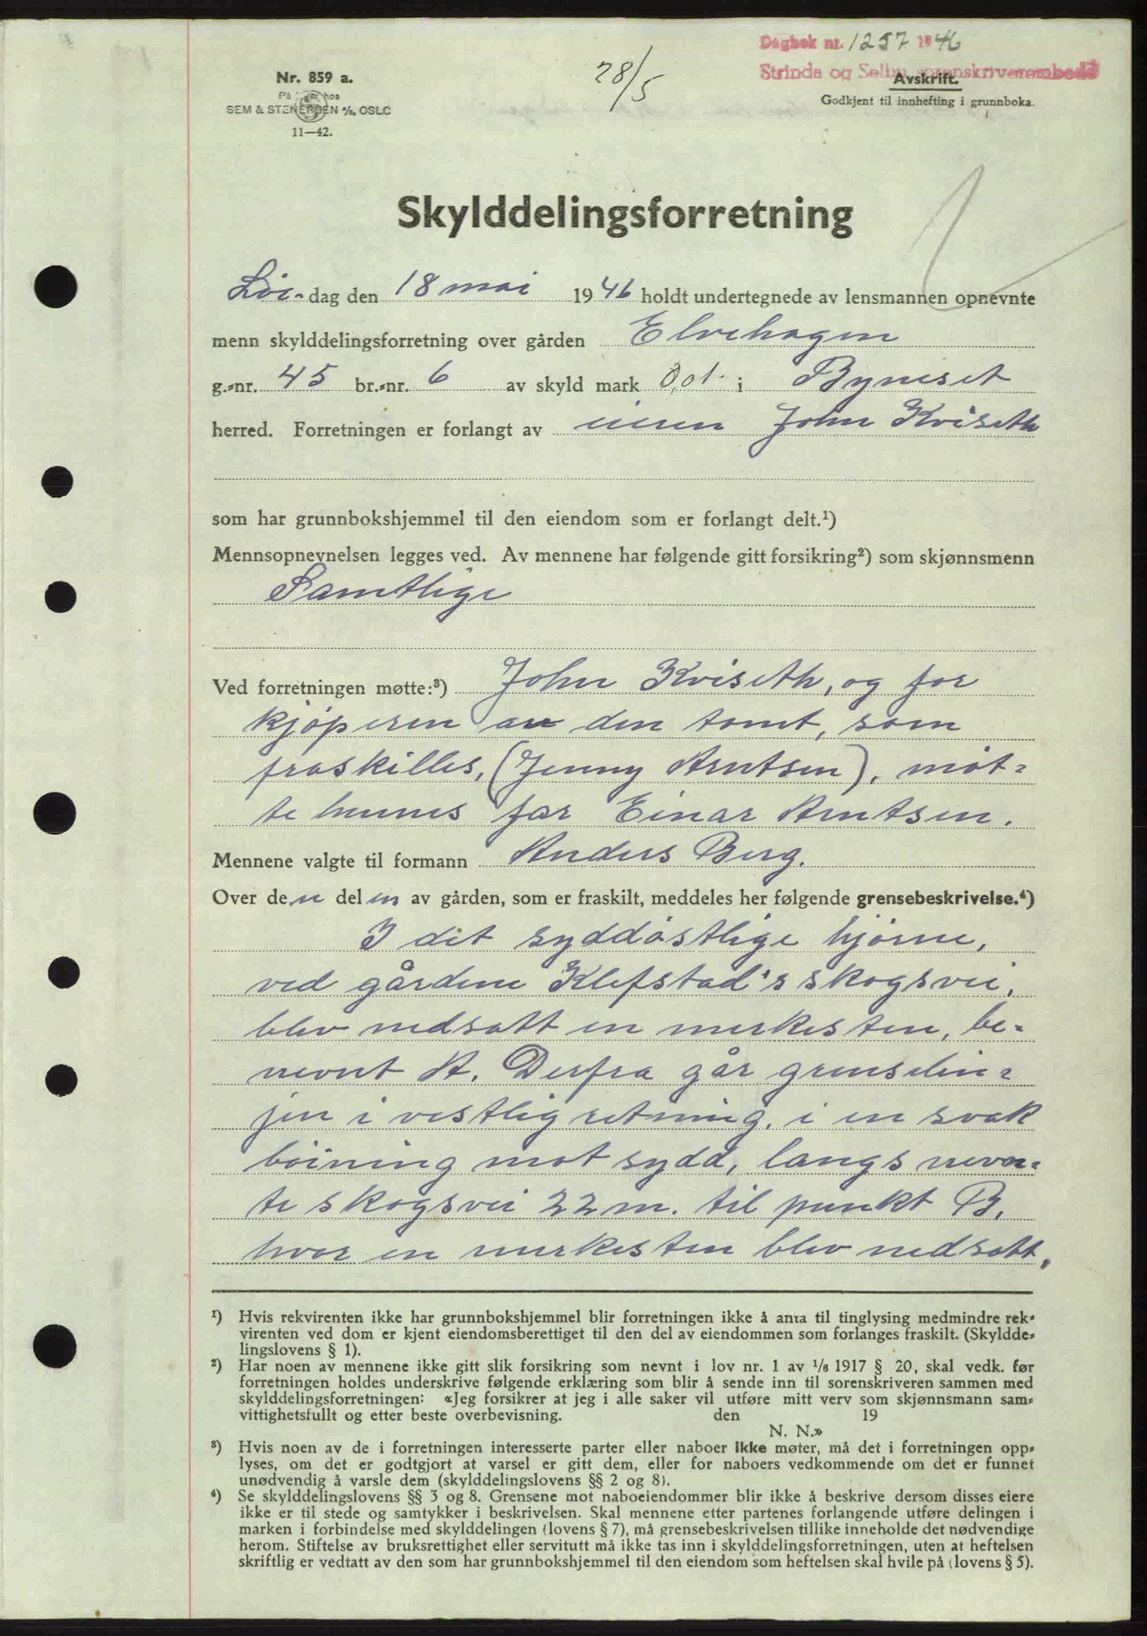 Dagbok nr. 1257 1946
Strinda og Selbu sorenskriverembede
28/5
Nr. 859 a.
På lager hos
SEM & STENERSEN A/S, OSLO
11—42.
Avskrift.
Godkjent til innhefting i grunnboka.
Skylddelingsforretning
Lör-dag den 18 mai 1946 holdt undertegnede av lensmannen opnevnte
menn skylddelingsforretning over gården Elvehagen
g.-nr. 45 br.-nr. 6 av skyld mark 0,01 i Byneset
herred. Forretningen er forlangt av eieren John Kviseth
som har grunnbokshjemmel til den eiendom som er forlangt delt.¹)
Mennsopnevnelsen legges ved. Av mennene har følgende gitt forsikring²) som skjønnsmenn
Samtlige
Ved forretningen møtte:³) John Kviseth, og for
kjøperen av den tomt, som
fraskilles, (Jenny Arntsen), møt-
te hennes far Einar Arntsen.
Mennene valgte til formann Anders Berg.
Over den delen av gården, som er fraskilt, meddeles her følgende grensebeskrivelse.⁴)
I det syddøstlige hjørne,
ved gårdene Klefstad's skogsvei,
blev nedsatt en merkesten, be-
nevnt A. Derfra går grenselin-
jen i vestlig retning, i en svak
bøining mot sydd, langs nevn-
te skogsvei 22 m. til punkt B,
hvor en merkesten blev nedsatt,
¹) Hvis rekvirenten ikke har grunnbokshjemmel blir forretningen ikke å anta til tinglysing medmindre rek-
virenten ved dom er kjent eiendomsberettiget til den del av eiendommen som forlanges fraskilt. (Skyldde-
lingslovens § 1).
²) Har noen av mennene ikke gitt slik forsikring som nevnt i lov nr. 1 av ¹/₆ 1917 § 20, skal vedk. før
forretningen holdes underskrive følgende erklæring som blir å sende inn til sorenskriveren sammen med
skylddelingsforretningen: «Jeg forsikrer at jeg i alle saker vil utføre mitt verv som skjønnsmann sam-
vittighetsfullt og etter beste overbevisning. den 19
N. N.»
³) Hvis noen av de i forretningen interesserte parter eller naboer ikke møter, må det i forretningen opp-
lyses, om det er godtgjort at varsel er gitt dem, eller for naboers vedkommende om det er funnet
unødvendig å varsle dem (skylddelingslovens §§ 2 og 8).
⁴) Se skylddelingslovens §§ 3 og 8. Grensene mot naboeiendommer blir ikke å beskrive dersom disses eiere
ikke er til stede og samtykker i beskrivelsen. Skal mennene etter partenes forlangende utføre delingen i
marken i forbindelse med skylddelingen (lovens § 7), må grensebeskrivelsen tillike inneholde det nødvendige
herom. Stiftelse av bruksrettighet eller servitutt må ikke tas inn i skylddelingsforretningen, uten at heftelsen
skriftlig er vedtatt av den som har grunnbokshjemmel til den eiendom som heftelsen skal hvile på (lovens § 5).